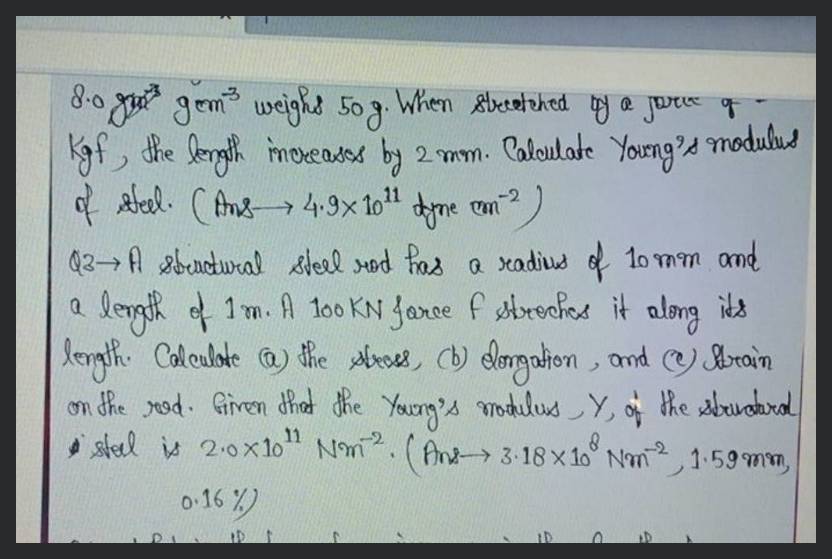 8.0 g cm⁻³ weighs 50 g. When streetched by a force of
Kgf, the length increases by 2 mm. Calculate Young's modulus
of steel. (Ans → 4.9×10¹¹ dyne cm⁻²)
Q3→ A structural steel rod has a radius of 10 mm and
a length of 1 m. A 100 KN force F streches it along its
length. Calculate (a) the stress, (b) elongation, and (c) Strain
on the rod. Given that the Young's modulus, Y, of the structural
steel is 2.0×10¹¹ Nm⁻². (Ans → 3.18×10⁸ Nm⁻², 1.59 mm,
0.16 %)